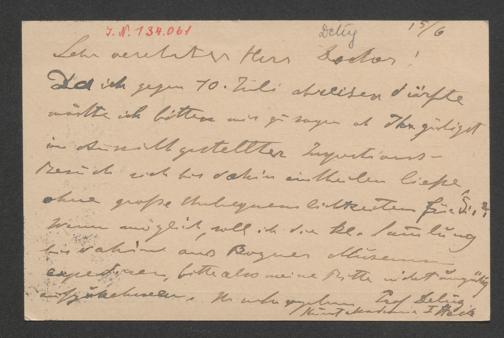 J. N. 134.061
Delug
15/6
Sehr verehrter Herr Doctor!
Da ich gegen 10. Juli abreisen dürfte
möchte ich bitten mir zu sagen ob Ihr gütigst
in Aussicht gestellter Inspections-
Besuch sich bis dahin einteilen ließe,
ohne große Unbequemlichkeiten für Sie.
Wenn möglich, will ich die kl. Sammlung
bis dahin ans Bozner Museum
expedieren, bitte also meine Bitte nicht ungütig
aufzunehmen. Prof Delug
Kunstakademie I